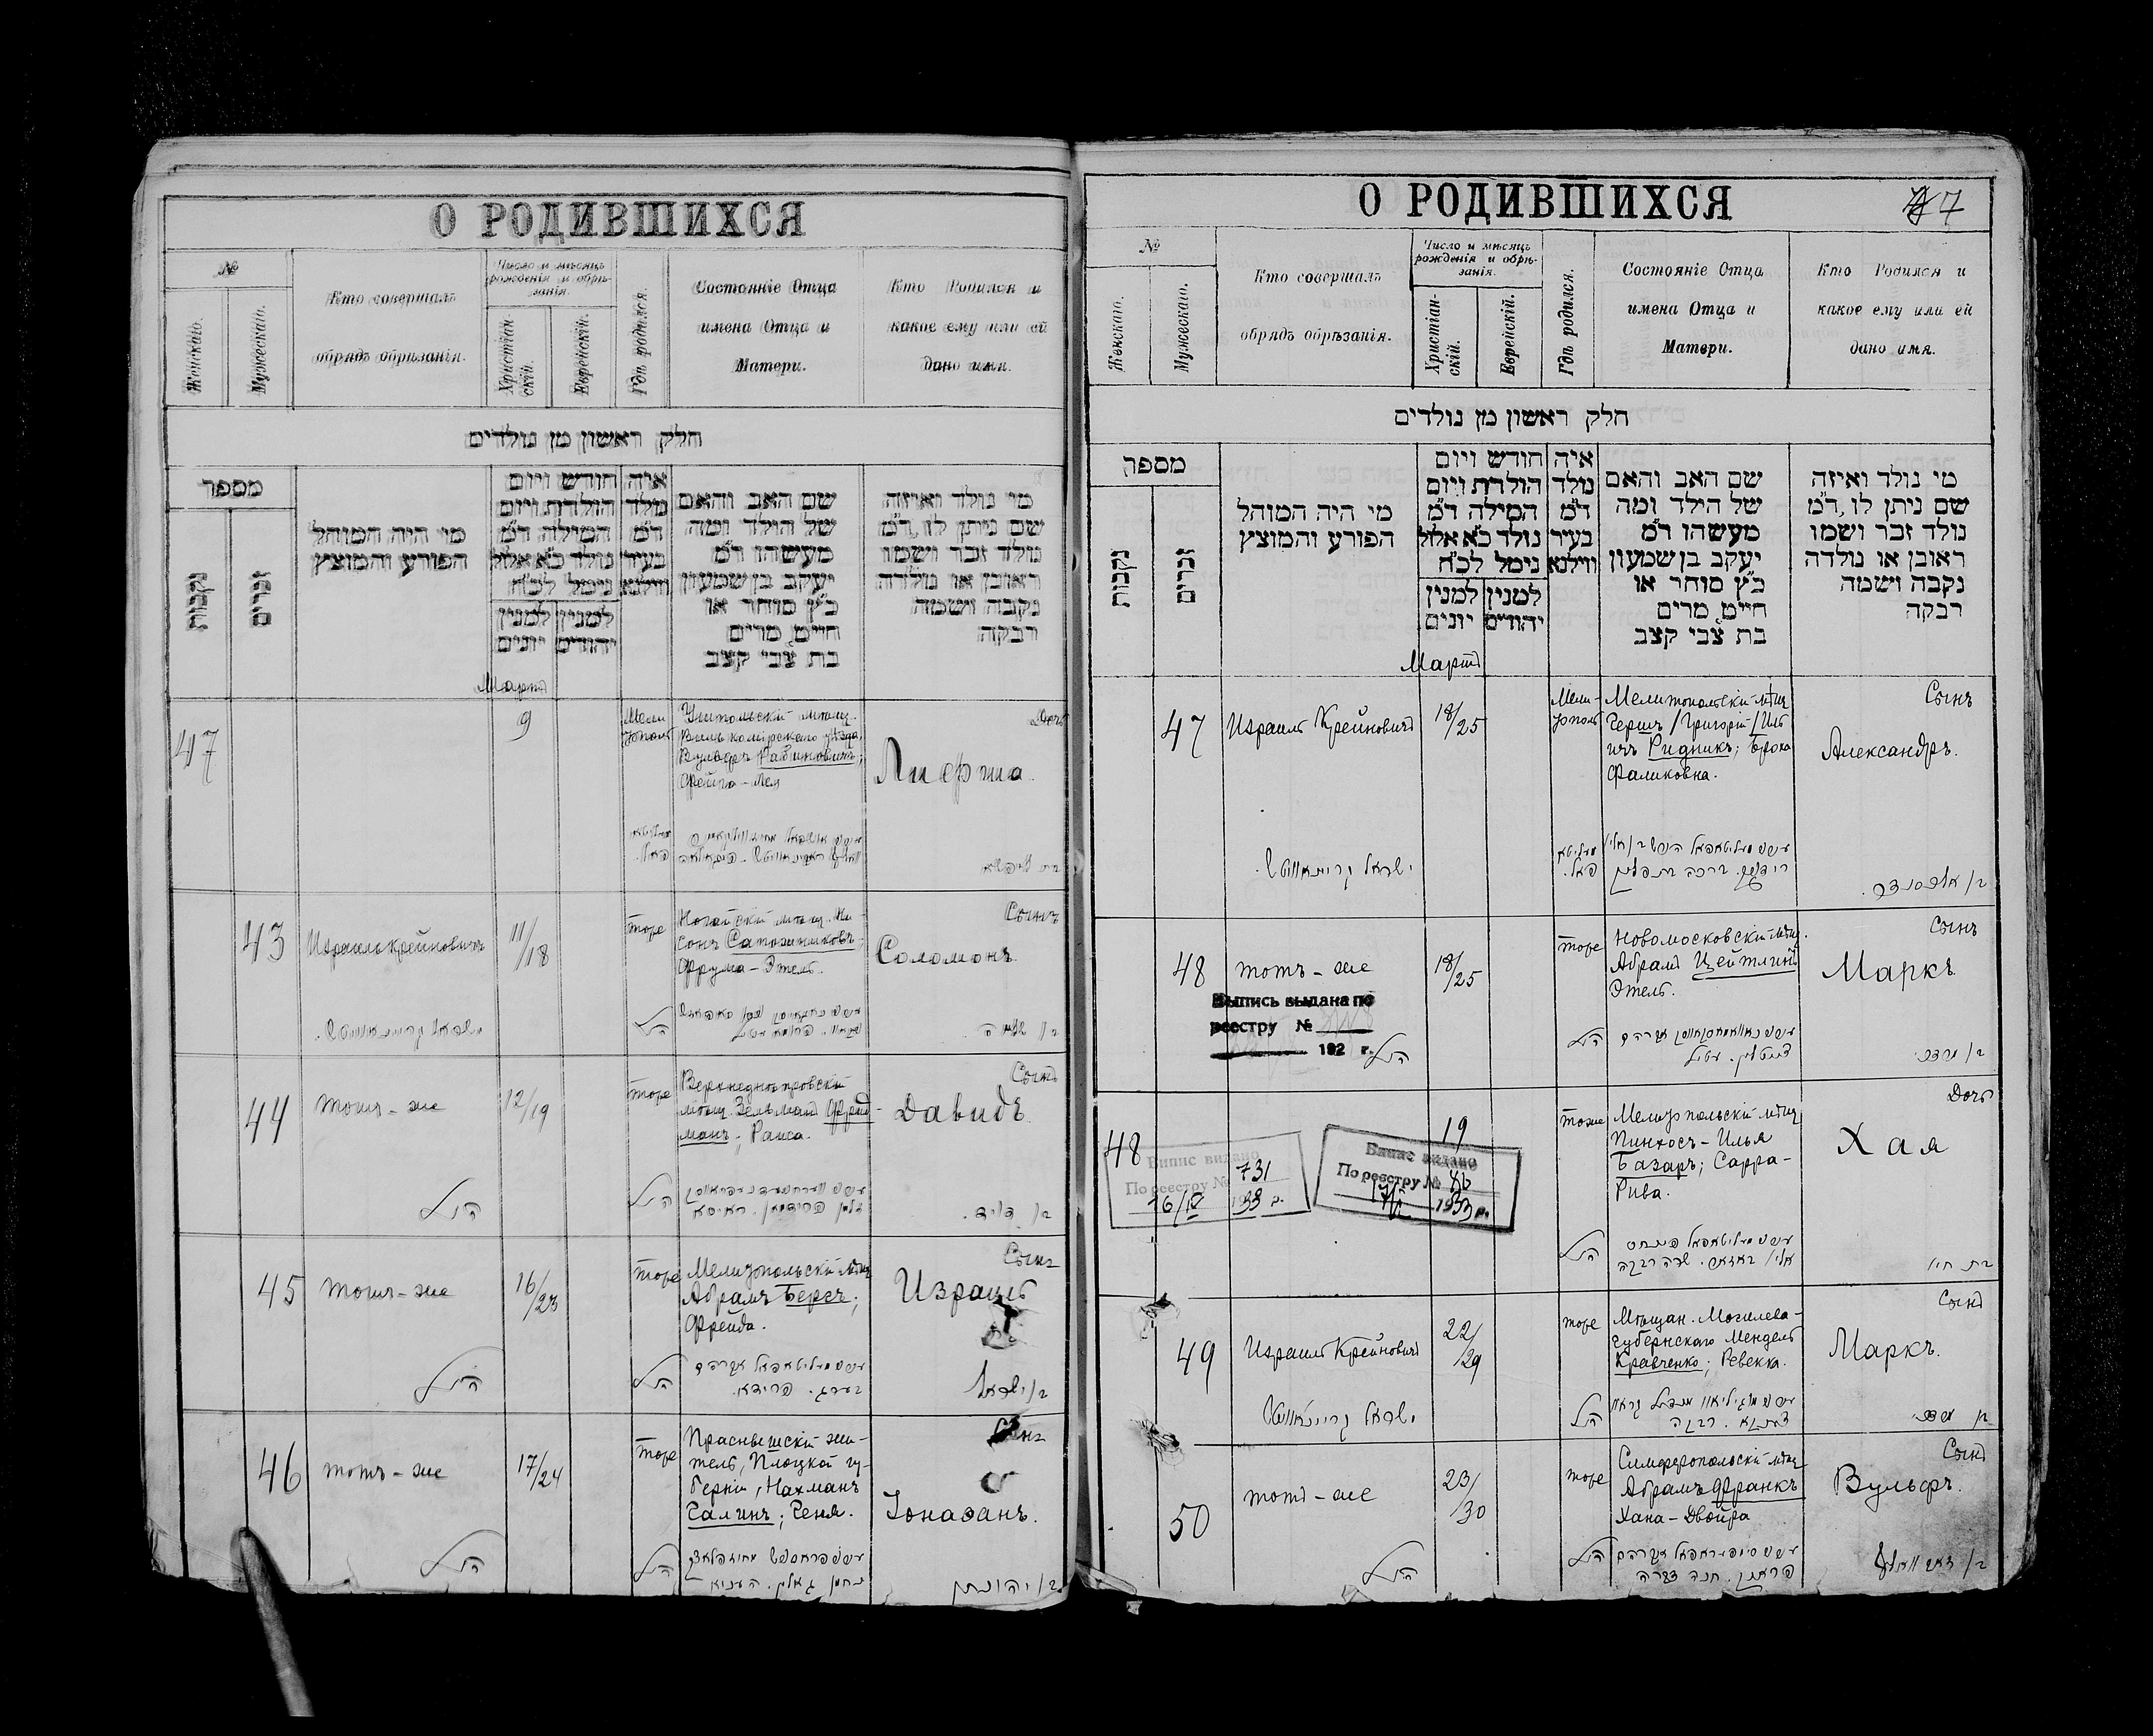 О РОДИВШИХСЯ
№
Женскаго.
Мужескаго.
Кто совершалъ
обрядъ обрѣзанія.
Число и мѣсяцъ
рожденія и обрѣ-
занія.
Христіан-
скій.
Еврейскій.
Гдѣ родился.
Состояніе Отца
имена Отца и
Матери.
Кто Родился и
какое ему или ей
дано имя.
חלק ראשון מן נולדים
מספר
נקבות
זכרים
מי היה המוהל
הפורע והמוצץ
חודש ויום
הולדת ויום
המילה ד״מ
נולד כ״א אלול
נימל לכ״ח
למנין
יונים
למנין
יהודים
איה
נולד
ד״מ
בעיר
ווילנא
שם האב והאם
של הילד ומה
מעשהו ד״מ
יעקב בן שמעון
כ״ץ סוחר או
חייט, מרים
בת צבי קצב
מי נולד ואיזה
שם ניתן לו, ד״מ
נולד זכר ושמו
ראובן או נולדה
נקבה ושמה
רבקה
Мартъ
47
9
Мели-
тополь
Вилькомірскаго уѣзда,
Вульфъ Рабиновичъ;
Фейга-Лея
Дочь
Лифша.
43
Израиль Крейновичъ
11/18
тоже
Ногайскій мѣщ. Ни-
сонъ Сапожниковъ;
Фрума-Этель.
Сынъ
Соломонъ.
ישראל קריינאוויטש.
הנ״ל
בן שלמה
44
тотъ-же
12/19
тоже
Верхнеднѣпровскій
мѣщ. Зельманъ Фрид-
манъ; Раиса.
Сынъ
Давидъ.
הנ״ל
הנ״ל
בן דוד.
45
тотъ-же
16/23
тоже
Мелитопольскій мѣщ.
Абрамъ Бергъ;
Фрейда.
Сынъ
Израиль
הנ״ל
הנ״ל
בן ישראל
46
тотъ-же
17/24
тоже
Праснышскій жи-
тель, Плоцкой гу-
берніи, Нахманъ
Галинъ; Геня.
Сынъ
Іонаѳанъ.
הנ״ל
הנ״ל
בן יהונתן
О РОДИВШИХСЯ
47
№
Женскаго.
Мужескаго.
Кто совершалъ
обрядъ обрѣзанія.
Число и мѣсяцъ
рожденія и обрѣ-
занія.
Христіан-
скій.
Еврейскій.
Гдѣ родился.
Состояніе Отца
имена Отца и
Матери.
Кто Родился и
какое ему или ей
дано имя.
חלק ראשון מן נולדים
מספר
נקבות
זכרים
מי היה המוהל
הפורע והמוצץ
חודש ויום
הולדת ויום
המילה ד״מ
נולד כ״א אלול
נימל לכ״ח
למנין
יונים
למנין
יהודים
איה
נולד
ד״מ
בעיר
ווילנא
שם האב והאם
של הילד ומה
מעשהו ד״מ
יעקב בן שמעון
כ״ץ סוחר או
חייט, מרים
בת צבי קצב
מי נולד ואיזה
שם ניתן לו, ד״מ
נולד זכר ושמו
ראובן או נולדה
נקבה ושמה
רבקה
Мартъ
47
Израиль Крейновичъ
18/25
Мели-
тополь
Мелитопольскій мѣщ.
Гершъ /Григорій/ Иль-
ичъ Ридникъ; Броха
Фаликовна.
Сынъ
Александръ.
ישראל קריינאוויטש.
בן אלכסנדר.
48
тотъ-же
18/25
тоже
Новомосковскій мѣщ.
Абрамъ Цейтлинъ
Этель.
Сынъ
Маркъ
Выпись выдана по
реестру №
192 г.
הנ״ל
הנ״ל
48
19
тоже
Мелитопольскій мѣщ.
Пинхосъ-Илья
Базаръ; Сарра-
Рива.
Дочь
Хая
Випис видано
По реестру № 731
16/IV 1933 р.
Випис видано
По реестру №
1933 р.
הנ״ל
בת חיי
49
Израиль Крейновичъ
22/29
тоже
Мѣщан. Могилева-
Губернскаго Мендель
Кравченко; Ревекка.
Сынъ
Маркъ.
ישראל קריינאוויטש
הנ״ל
50
тотъ-же
23/30
тоже
Симферопольскій мѣщ.
Абрамъ Франкъ
Хана-Двойра
Сынъ
Вульфъ.
הנ״ל
הנ״ל